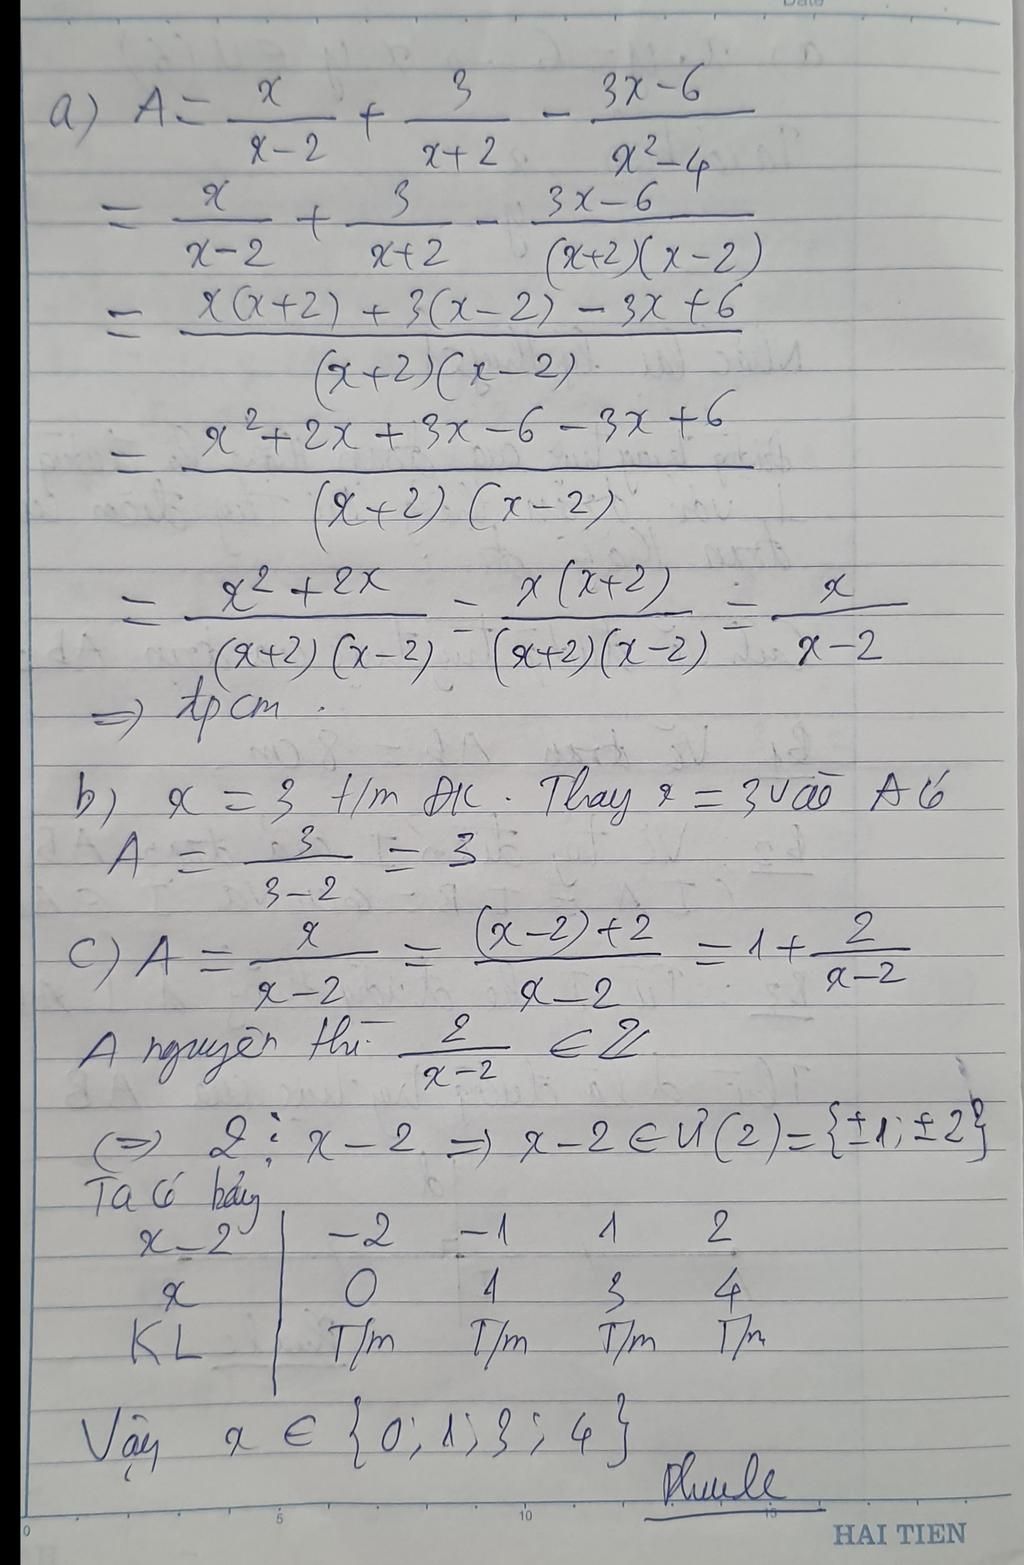 a) A = x/(x-2) + 3/(x+2) - (3x-6)/(x²-4)
= x/(x-2) + 3/(x+2) - (3x-6)/((x+2)(x-2))
= (x(x+2) + 3(x-2) - 3x + 6)/((x+2)(x-2))
= (x² + 2x + 3x - 6 - 3x + 6)/((x+2)(x-2))
= (x² + 2x)/((x+2)(x-2)) = x(x+2)/((x+2)(x-2)) = x/(x-2)
=> đpcm.
b) x = 3 t/m ĐK. Thay x = 3 vào A có
A = 3/(3-2) = 3
c) A = x/(x-2) = ((x-2)+2)/(x-2) = 1 + 2/(x-2)
A nguyên thì 2/(x-2) ∈ Z
(=> 2 ⋮ x-2 => x-2 ∈ Ư(2) = {±1; ±2}
Ta có bảng
x-2 | -2 -1 1 2
x | 0 1 3 4
KL | T/m T/m T/m T/m
Vậy x ∈ {0; 1; 3; 4}
0 5 10 15
HAI TIEN